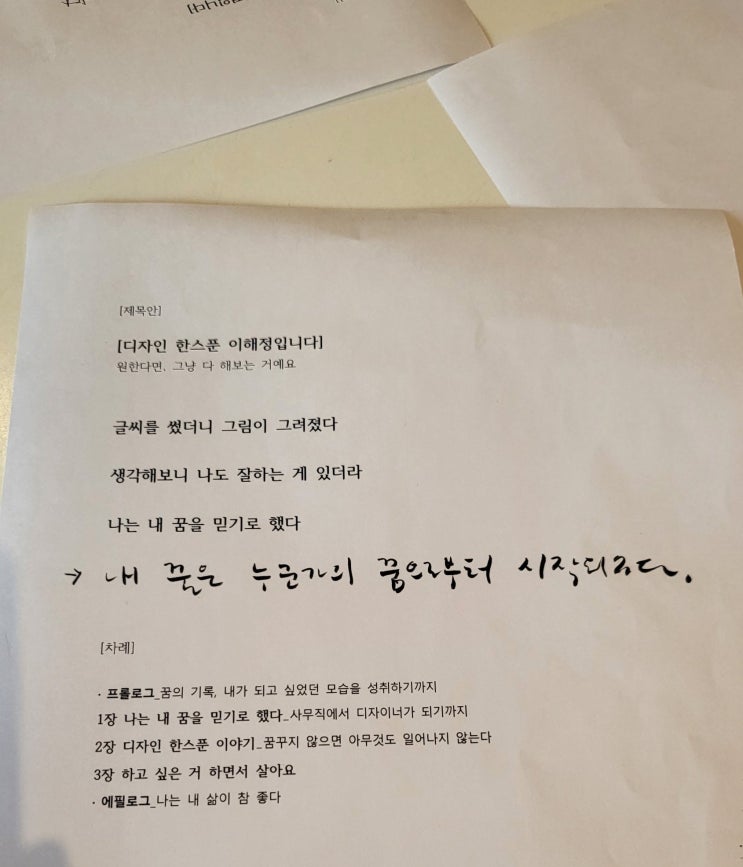 [제목안]
[디자인 한스푼 이해정입니다]
원한다면, 그냥 다 해보는 거예요
글씨를 썼더니 그림이 그려졌다
생각해보니 나도 잘하는 게 있더라
나는 내 꿈을 믿기로 했다
→ 내 꿈은 누군가의 꿈으로부터 시작되었다.
[차례]
· 프롤로그_꿈의 기록, 내가 되고 싶었던 모습을 성취하기까지
1장 나는 내 꿈을 믿기로 했다_사무직에서 디자이너가 되기까지
2장 디자인 한스푼 이야기_꿈꾸지 않으면 아무것도 일어나지 않는다
3장 하고 싶은 거 하면서 살아요
· 에필로그_나는 내 삶이 참 좋다